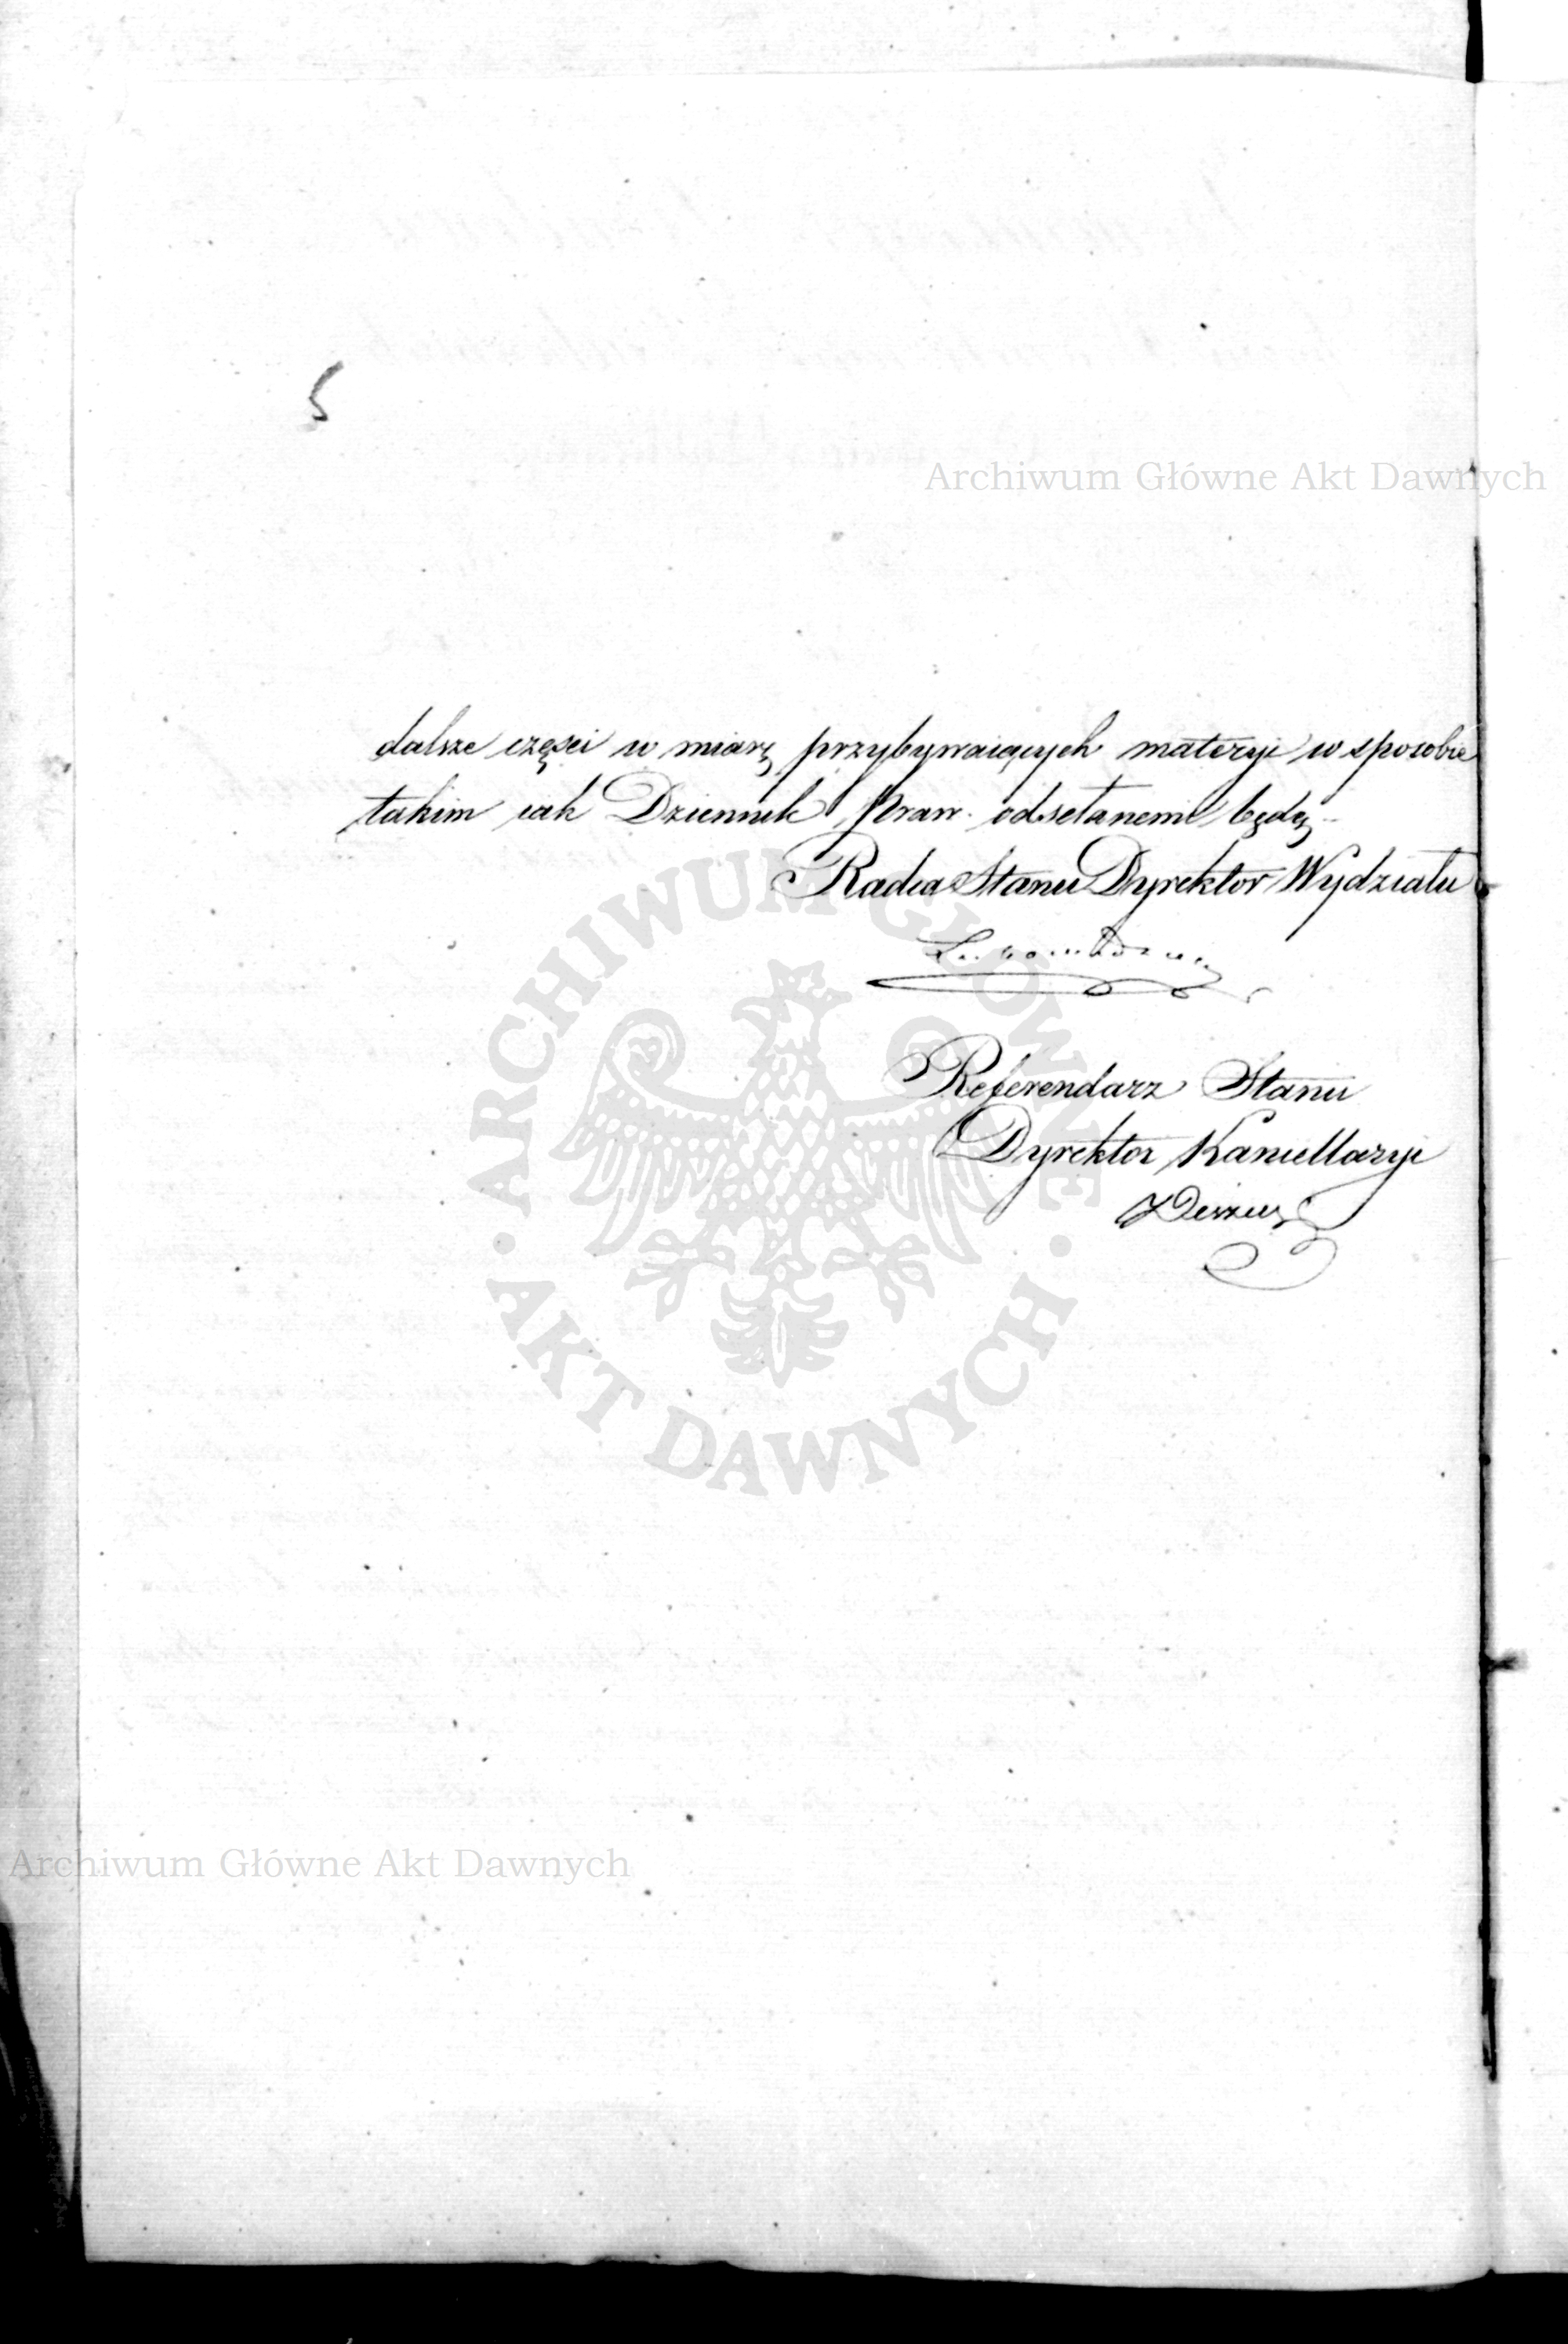 5
Archiwum Główne Akt Dawnych
dalsze części w miarę przybywaiących materyi w sposobie
takim iak Dziennik Praw odsełanemi będą
Radca Stanu Dyrektor Wydziału
Referendarz Stanu
Dyrektor Kancellaryi
ARCHIWUM GŁÓWNE
AKT DAWNYCH
Archiwum Główne Akt Dawnych